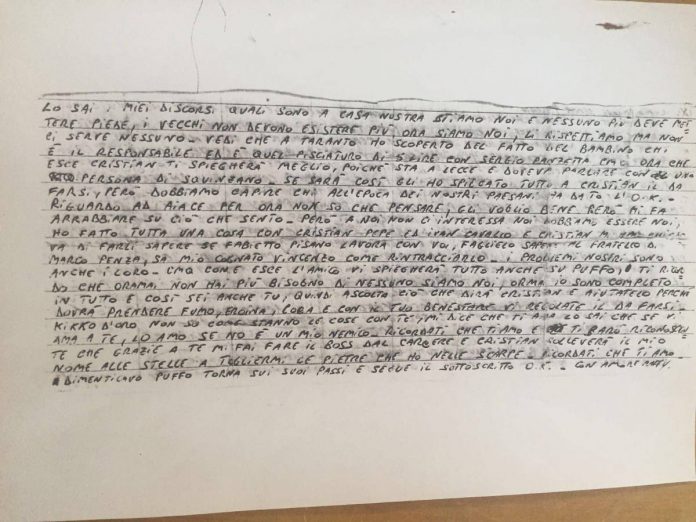 LO SAI I MIEI DISCORSI QUALI SONO A CASA NOSTRA SIAMO NOI E NESSUNO PIÙ DEVE MET
TERE PIEDE, I VECCHI NON DEVONO ESISTERE PIÙ, ORA SIAMO NOI, LI RISPETTIAMO MA NON
CI SERVE NESSUNO - VEDI CHE A TARANTO HO SCOPERTO DEL FATTO DEL BAMBINO CHI
È IL RESPONSABILE ED È QUEL PISCIATURO DI 5 LIRE CON SERGIO CMQ ORA CHE
ESCE CRISTIAN TI SPIEGHERÀ MEGLIO, POICHÈ STA A LECCE E DOVEVA PARLARE CON UNA
PERSONA DI SQUINZANO - SE SARÀ COSÌ GLI HO SPIEGATO TUTTO A CRISTIAN IL DA
FARSI, PERÒ DOBBIAMO CAPIRE CHI ALL'EPOCA DEI NOSTRI PAESANI HA DATO L'O.K. -
RIGUARDO AD AIACE PER ORA NON SO CHE PENSARE, GLI VOGLIO BENE PERÒ MI FA
ARRABBIARE SU CIÒ CHE SENTO - PERÒ A NOI NON CI INTERESSA NOI DOBBIAMO ESSERE NOI.
HO FATTO TUTTA UNA COSA CON CRISTIAN PEPE ED IVAN E CRISTIAN
VA DI FARLI SAPERE SE FABIETTO PISANO LAVORA CON VOI, FAGLIELO SAPERE AL FRATELLO DI
MARCO PENZA, SA MIO COGNATO VINCENZO COME RINTRACCIARLO - I PROBLEMI NOSTRI SONO
ANCHE I LORO - CMQ COME ESCE L'AMICO VI SPIEGHERÀ TUTTO ANCHE SU PUFFO, TI RICOR
DO CHE ORAMAI NON HAI PIÙ BISOGNO DI NESSUNO SIAMO NOI, ORMAI IO SONO COMPLETO
IN TUTTO E COSÌ SEI ANCHE TU, QUINDI ASCOLTA CIÒ CHE DIRÀ CRISTIAN E AIUTATELO PERCHÈ
DOVRÀ PRENDERE FUMO, EROINA, COBA E CON IL TUO BENESTARE VI REGOLATE IL DA FARSI.
KIKKO D'ORO NON SO COME STANNO LE COSE CON TE, MI DICE CHE TI AMA LO SAI CHE SE MI
AMA A TE, LO AMO SE NO È UN MIO NEMICO - RICORDATI CHE TI AMO E TI SARÒ RICONOSCEN
TE CHE GRAZIE A TE MI FAI FARE IL BOSS DAL CARCERE E CRISTIAN SOLLEVERÀ IL MIO
NOME ALLE STELLE A TOGLIERMI LE PIETRE CHE HO NELLE SCARPE - RICORDATI CHE TI AMO -
DIMENTICAVO PUFFO TORNA SUI SUOI PASSI E SEGUE IL SOTTOSCRITTO O.K. - CON AMORE